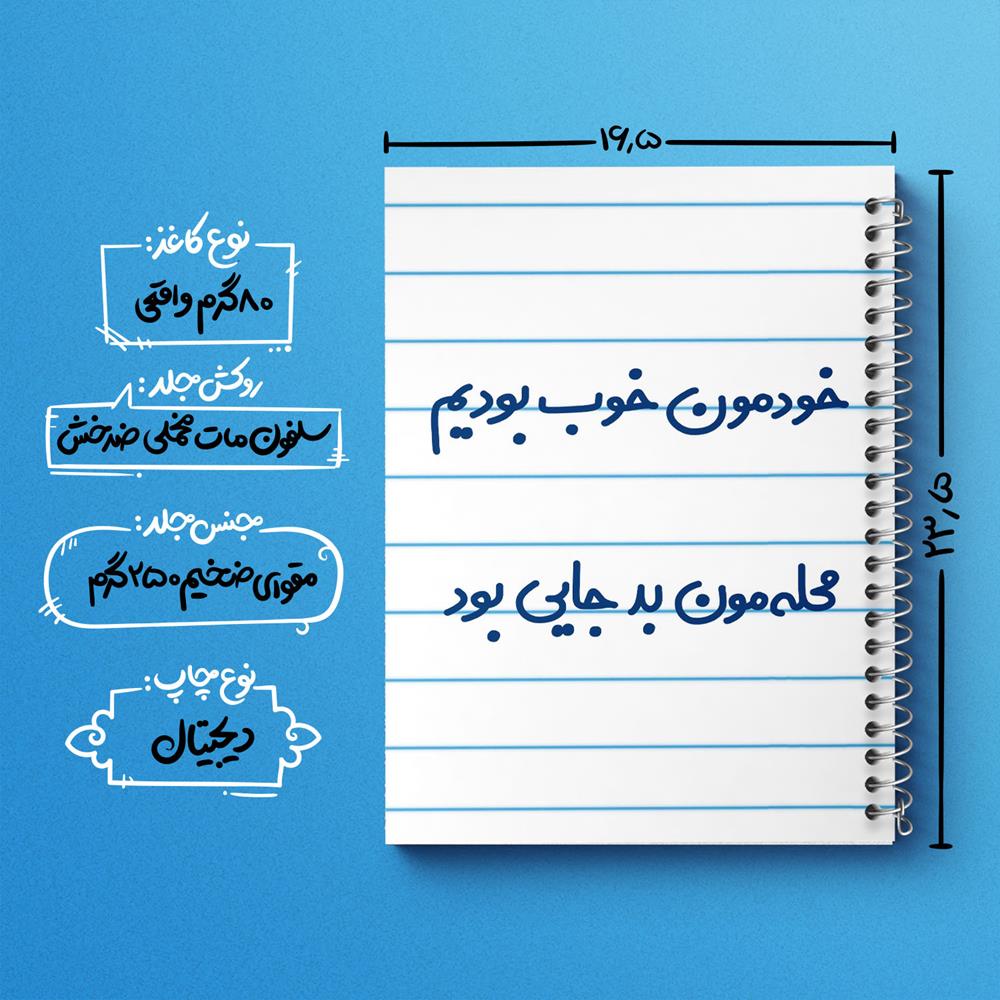 ۱۶,۵
۲۳,۵
خودمون خوب بودیم
محله‌مون بد جایی بود
نوع کاغذ:
۸۰ گرم واقعی
روکش جلد:
سلفون مات مخملی ضدخش
جنس جلد:
مقوای ضخیم ۲۵۰ گرم
نوع چاپ:
دیجیتال